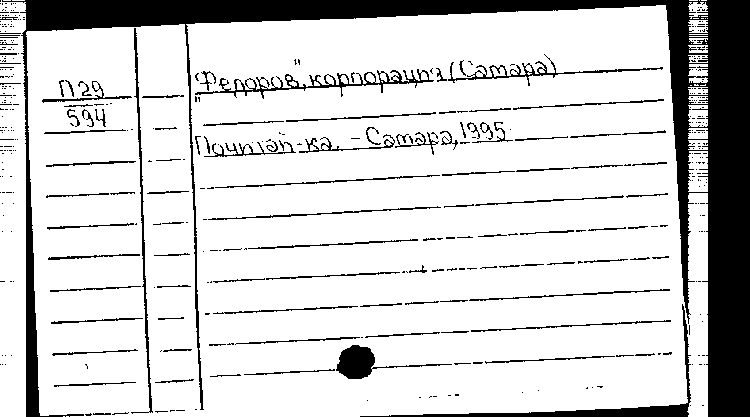 П29
594
"Федоров", корпорация (Самара)
Почта п-ка. - Самара, 1995